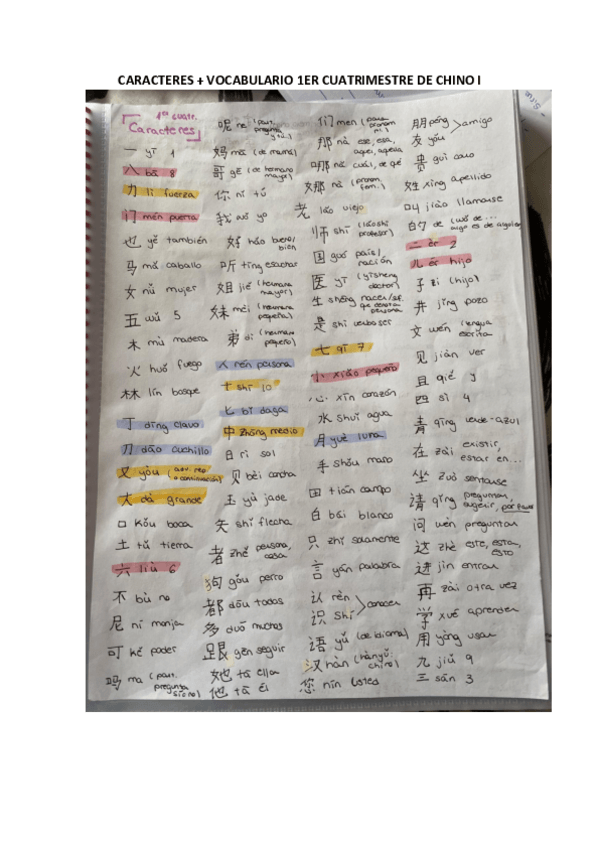 CARACTERES + VOCABULARIO 1ER CUATRIMESTRE DE CHINO I
1er cuatr.
Caracteres
一 yī 1
八 bā 8
力 lì fuerza
门 mén puerta
也 yě también
马 mǎ caballo
女 nǚ mujer
五 wǔ 5
木 mù madera
火 huǒ fuego
林 lín bosque
丁 dīng clavo
刀 dāo cuchillo
又 yòu (adv. rep. o continuación)
大 dà grande
口 kǒu boca
土 tǔ tierra
六 liù 6
不 bù no
尼 ní monja
可 kě poder
吗 ma (part. pregunta sí o no)
呢 ne (part. pregunta y tú..)
妈 mā (de mamá)
哥 gē (de hermano mayor)
你 nǐ tú
我 wǒ yo
好 hǎo bueno/bien
听 tīng escuchar
姐 jiě (hermana mayor)
妹 mèi (hermana pequeña)
弟 dì (hermano pequeño)
人 rén persona
十 shí 10
匕 bǐ daga
中 zhōng medio
日 rì sol
贝 bèi concha
玉 yù jade
矢 shǐ flecha
者 zhě persona, cosa
狗 gǒu perro
都 dōu todos
多 duō muchos
跟 gēn seguir
她 tā ella
他 tā él
们 men (para pronom. pl.)
那 nà ese, esa, aquel, aquella
哪 nǎ cuál, de qué
娜 nà (pronom. fem.)
老 lǎo viejo
师 shī (lǎoshī profesor)
国 guó país/nación
医 yī (yīshēng doctor)
生 shēng nacer/suf. que denota persona
是 shì verbo ser
七 qī 7
小 xiǎo pequeño
心 xīn corazón
水 shuǐ agua
月 yuè luna
手 shǒu mano
田 tián campo
白 bái blanco
只 zhǐ solamente
言 yán palabra
认 rèn
识 shí > conocer
语 yǔ (de idioma)
汉 hàn (hànyǔ: chino)
您 nín usted
朋 péng > amigo
友 yǒu
贵 guì caro
姓 xìng apellido
叫 jiào llamarse
的 de (wǒ de... algo es de alguien)
二 èr 2
儿 ér hijo
子 zi (hijo)
井 jǐng pozo
文 wén (lengua escrita)
见 jiàn ver
且 qiě y
四 sì 4
青 qīng verde-azul
在 zài existir, estar en...
坐 zuò sentarse
请 qǐng preguntar, sugerir, por favor
问 wèn preguntar
这 zhè este, esta, esto
进 jìn entrar
再 zài otra vez
学 xué aprender
用 yòng usar
九 jiǔ 9
三 sān 3